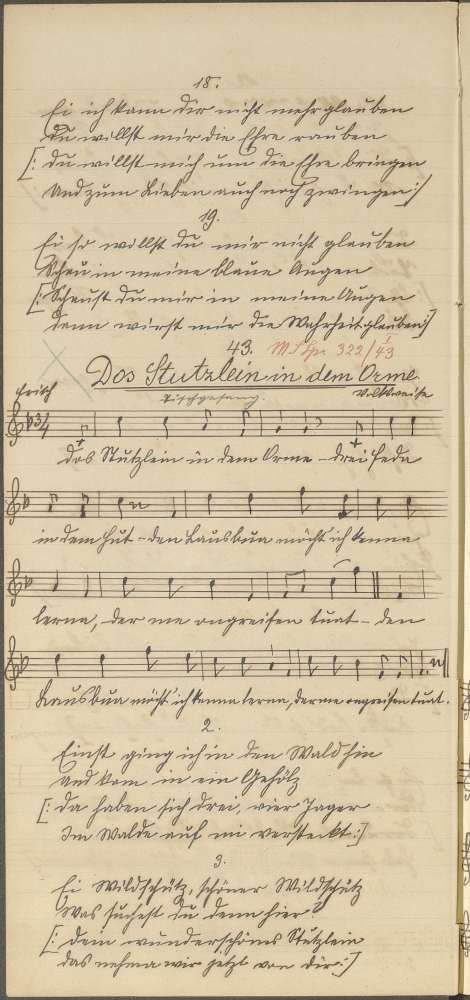 18.
Ei ich kann dir nicht mehr glauben
du willst mir die Ehre rauben
[: du willst mich um die Ehre bringen
Und zum Lieben auch noch zwingen :]
19.
Ei so willst du mir nicht glauben
Schau in meine blaue Augen
[: Schaust du mir in meine Augen
dann wirst mir die Wahrheit glauben :]
43. 322/43
Dos Stutzlein in dem Orme.
Frisch Tischgesang. Volksweise
3/4
dos Stutzlein in dem Orme – drei Feda
in dem Hut – den Lausbua möcht ich kenna
lerna, der me ongreifen tuat – den
Lausbua möcht ich kenna lerna, der me ongreifen tuat.
2.
Einst ging ich in den Wald hin
und kam in ein Gehölz
[: Da haben sich drei, vier Jager
Im Walde auf mi versteckt :]
3.
Ei Wildschütz, schöner Wildschütz
Was suchest du denn hier?
[: Dein wunderschönes Stutzlein
das nehma wir jetzt von dir :]